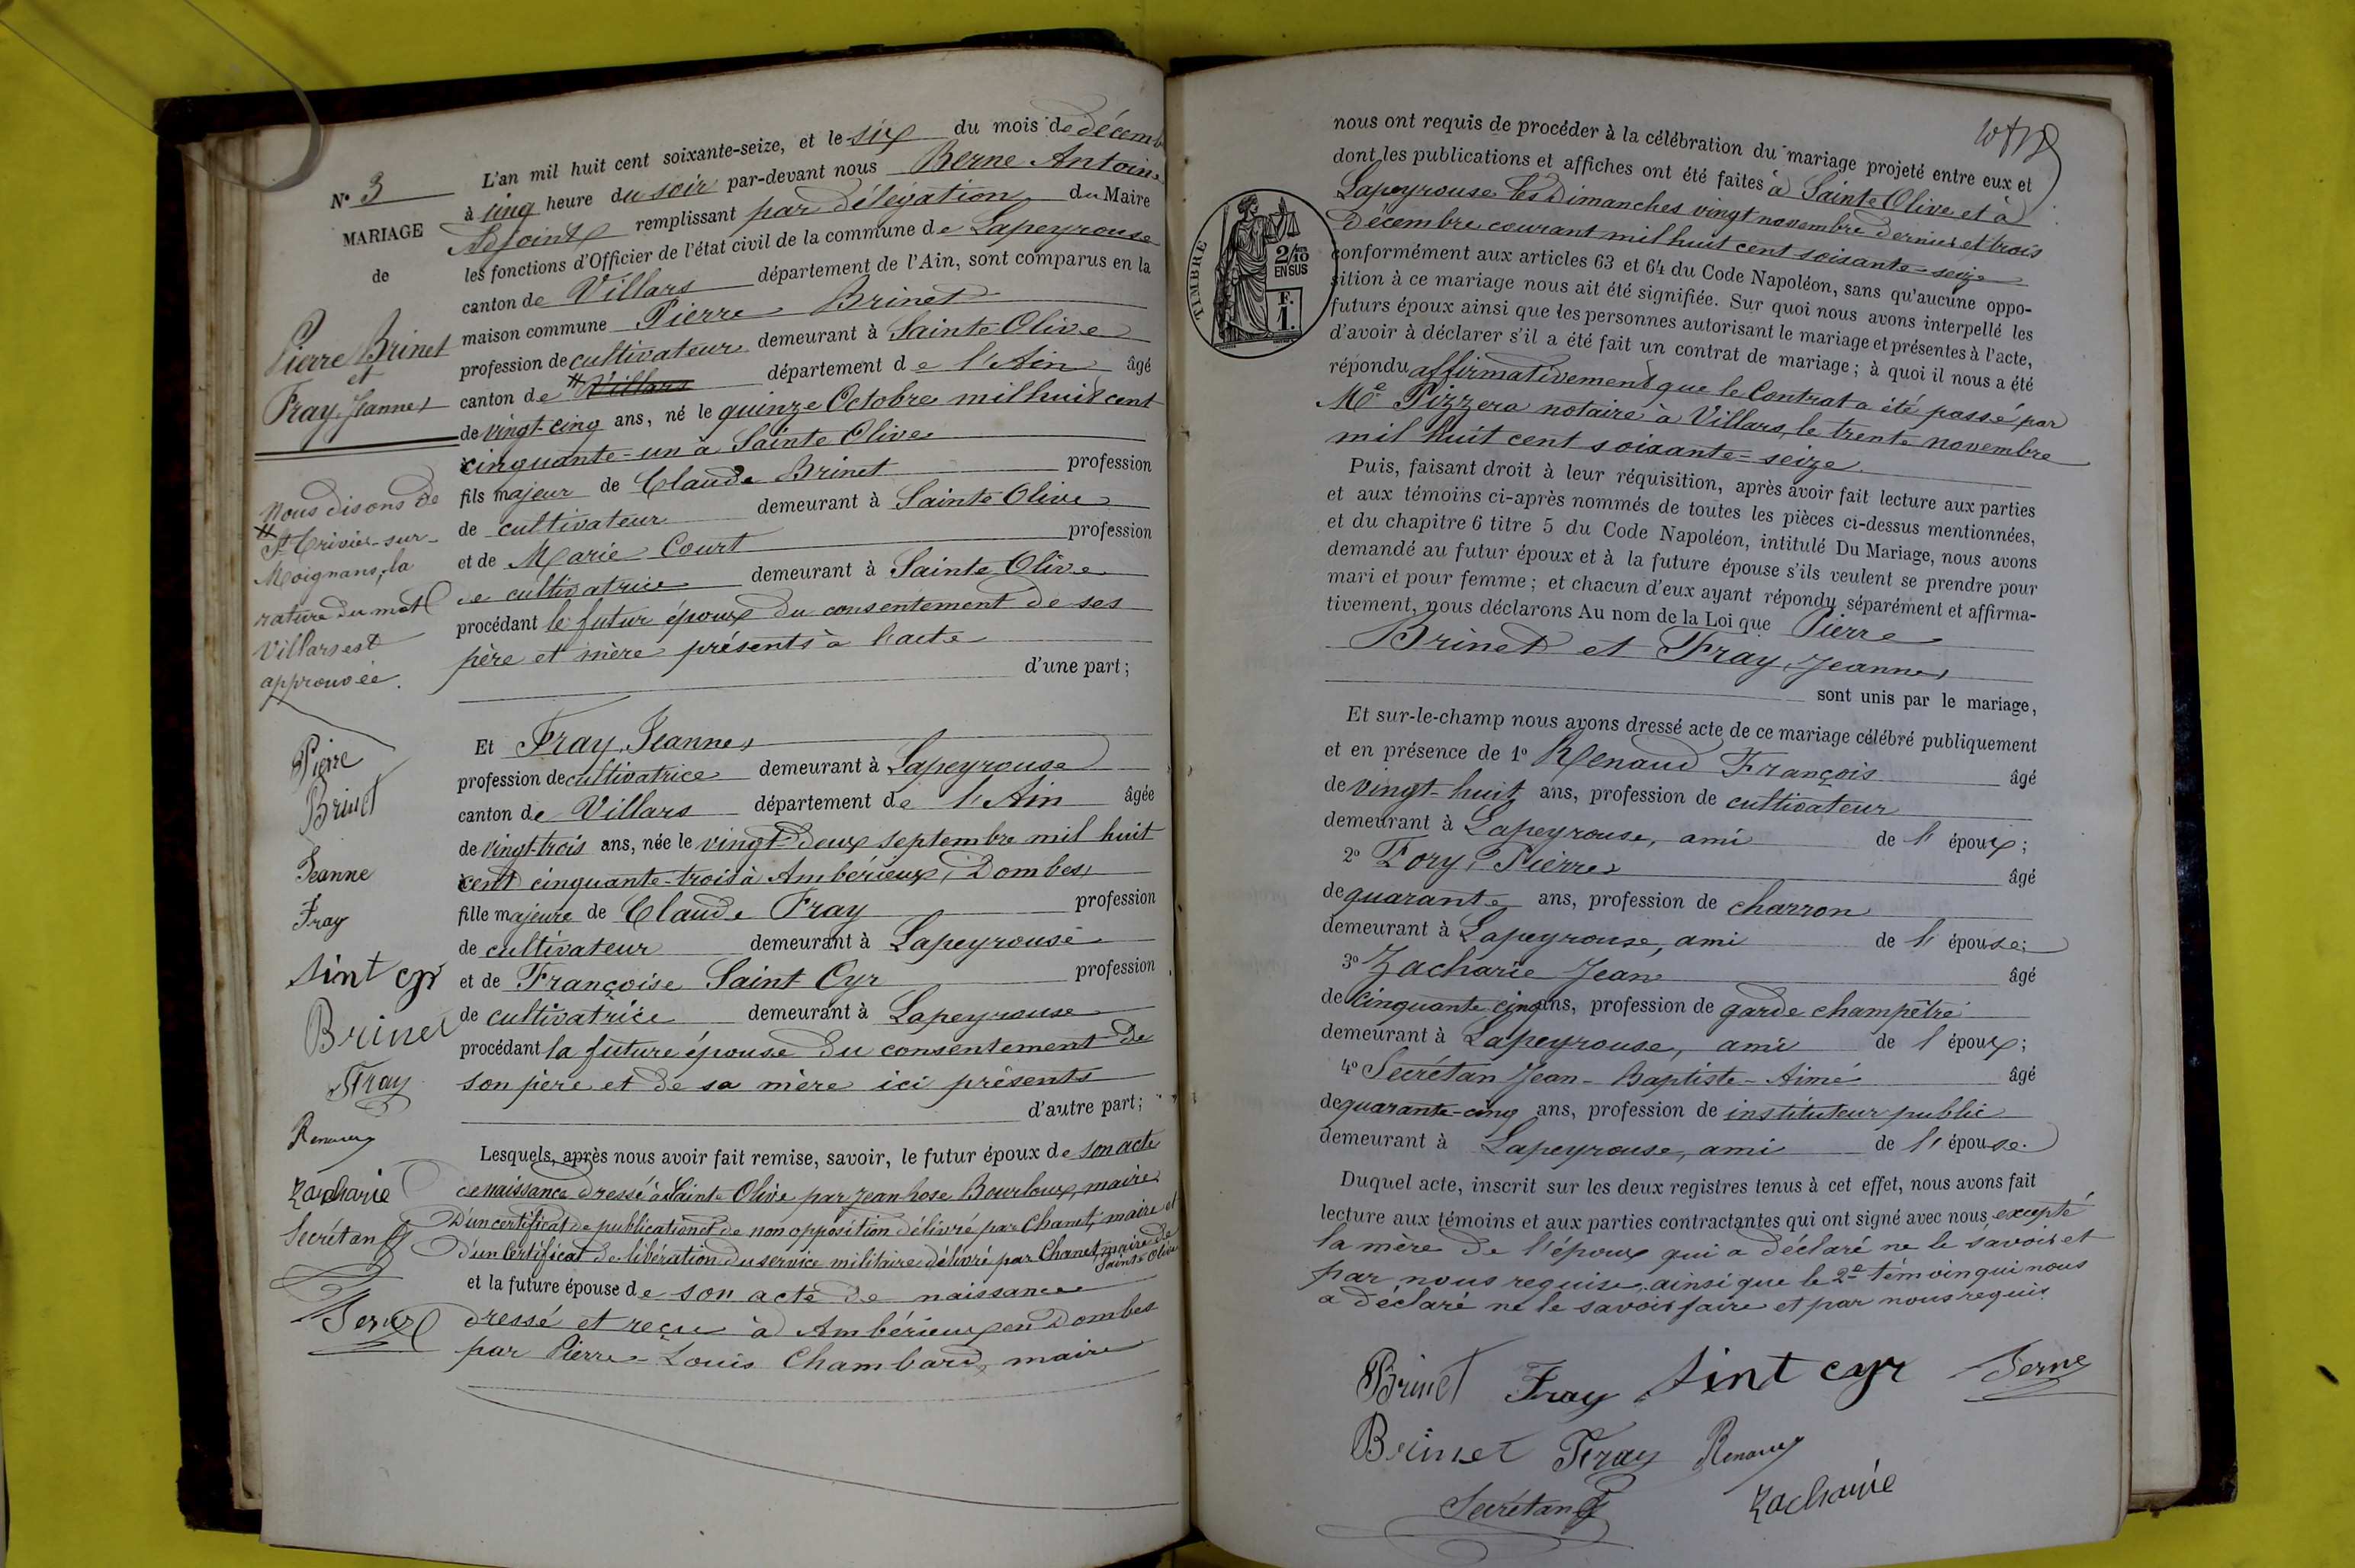 N° 3
MARIAGE
de
Pierre Brinet
et
Fray Jeanne
Nous disons de
St Trivier-sur-
Moignans, la
rature du mot
Villars est
approuvée.
Pierre
Brinet
Jeanne
Fray
Sint cyr
Brinet
Fray
Renaud
Zacharie
Secrétan
Berne
L'an mil huit cent soixante-seize, et le six du mois de décemb
à cinq heure du soir par-devant nous Berne Antoine
Adjoint remplissant par délégation du Maire
les fonctions d'Officier de l'état civil de la commune de Lapeyrouse
canton de Villars département de l'Ain, sont comparus en la
maison commune Pierre Brinet
profession de cultivateur demeurant à Sainte Olive
canton de # Villars département de l'Ain âgé
de vingt-cinq ans, né le quinze Octobre mil huit cent
cinquante-un à Sainte Olive
fils majeur de Claude Brinet profession
de cultivateur demeurant à Sainte Olive
et de Marie Court profession
de cultivatrice demeurant à Sainte Olive
procédant le futur époux du consentement de ses
père et mère présents à l'acte
d'une part;
Et Fray Jeanne
profession de cultivatrice demeurant à Lapeyrouse
canton de Villars département de l'Ain âgée
de vingt-trois ans, née le vingt-deux septembre mil huit
cent cinquante-trois à Ambérieux, Dombes
fille majeure de Claude Fray profession
de cultivateur demeurant à Lapeyrouse
et de Françoise Saint Cyr profession
de cultivatrice demeurant à Lapeyrouse
procédant la future épouse du consentement de
son père et de sa mère ici présents
d'autre part;
Lesquels, après nous avoir fait remise, savoir, le futur époux de son acte
de naissance dressé à Sainte Olive par Jean Bourloux, maire
D'un certificat de publication et de non opposition délivré par Chanet, maire et
d'un Certificat de libération du service militaire délivré par Chanet, maire de
Sainte Olive
et la future épouse de son acte de naissance
dressé et reçu à Ambérieux en Dombes
par Pierre-Louis Chambard, maire
TIMBRE
2/10
EN SUS
F.
1.
nous ont requis de procéder à la célébration du mariage projeté entre eux et
dont les publications et affiches ont été faites à Sainte Olive et à
Lapeyrouse les Dimanches vingt novembre dernier et trois
Décembre courant mil huit cent soixante-seize
conformément aux articles 63 et 64 du Code Napoléon, sans qu'aucune oppo-
sition à ce mariage nous ait été signifiée. Sur quoi nous avons interpellé les
futurs époux ainsi que les personnes autorisant le mariage et présentes à l'acte,
d'avoir à déclarer s'il a été fait un contrat de mariage; à quoi il nous a été
répondu affirmativement que le Contrat a été passé par
Me Pizzera notaire à Villars, le trente novembre
mil huit cent soixante-seize.
Puis, faisant droit à leur réquisition, après avoir fait lecture aux parties
et aux témoins ci-après nommés de toutes les pièces ci-dessus mentionnées,
et du chapitre 6 titre 5 du Code Napoléon, intitulé Du Mariage, nous avons
demandé au futur époux et à la future épouse s'ils veulent se prendre pour
mari et pour femme; et chacun d'eux ayant répondu séparément et affirma-
tivement, nous déclarons Au nom de la Loi que Pierre
Brinet et Fray Jeanne
sont unis par le mariage,
Et sur-le-champ nous avons dressé acte de ce mariage célébré publiquement
et en présence de 1° Renaud François âgé
de vingt-huit ans, profession de cultivateur
demeurant à Lapeyrouse, ami de l'époux;
2° Fory, Pierre âgé
de quarante ans, profession de charron
demeurant à Lapeyrouse, ami de l'épouse;
3° Zacharie Jean âgé
de cinquante cinq ans, profession de garde champêtre
demeurant à Lapeyrouse, ami de l'époux;
4° Secrétan Jean-Baptiste-Aimé âgé
de quarante-cinq ans, profession de instituteur public
demeurant à Lapeyrouse, ami de l'épouse.
Duquel acte, inscrit sur les deux registres tenus à cet effet, nous avons fait
lecture aux témoins et aux parties contractantes qui ont signé avec nous, excepté
la mère de l'époux qui a déclaré ne le savoir et
par nous requise, ainsi que le 2e témoin qui nous
a déclaré ne le savoir faire et par nous requis.
Brinet Fray Sint cyr Berne
Brinet Fray Renaud
Secrétan Zacharie